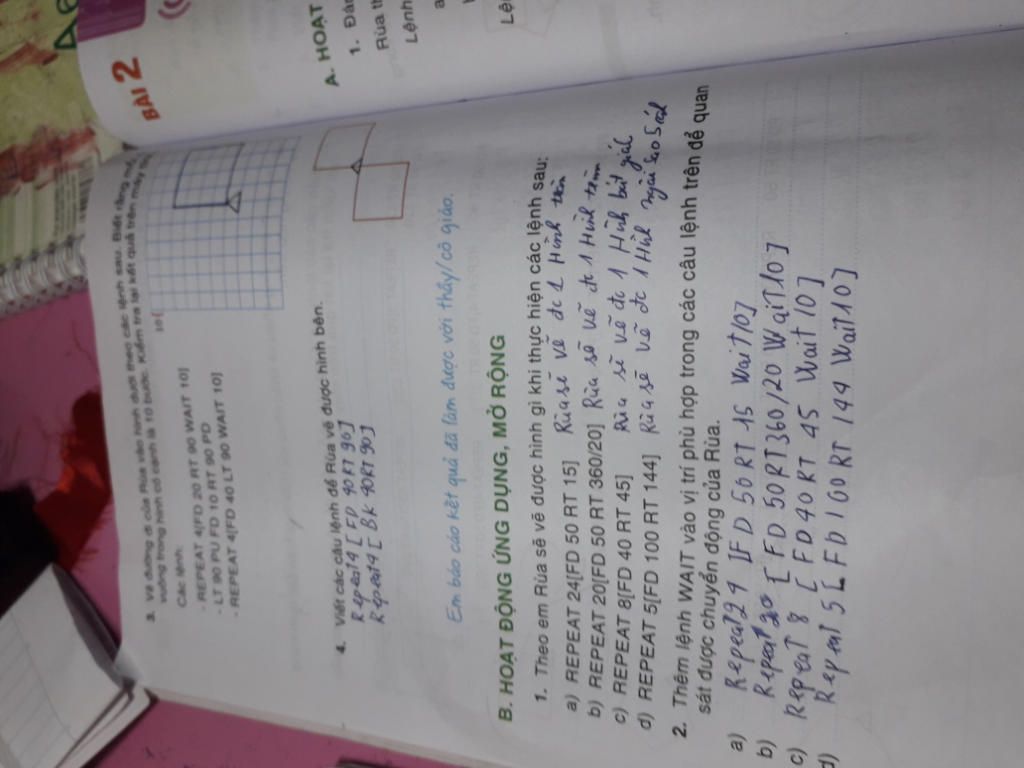 BÀI 2
A. HOẠT
Rùa
Lệnh
3. Vẽ đường đi của Rùa vào hình dưới theo các lệnh sau. Biết rằng mỗi
vuông trong hình có cạnh là 10 bước. Kiểm tra lại kết quả trên máy
Các lệnh:
- REPEAT 4[FD 20 RT 90 WAIT 10]
- LT 90 PU FD 10 RT 90 PD
- REPEAT 4[FD 40 LT 90 WAIT 10]
4. Viết các câu lệnh để Rùa vẽ được hình bên.
Repeat 4 [FD 90 RT 90]
Repeat 4 [Bk 90 RT 90]
Em báo cáo kết quả đã làm được với thầy/cô giáo.
B. HOẠT ĐỘNG ỨNG DỤNG, MỞ RỘNG
1. Theo em Rùa sẽ vẽ được hình gì khi thực hiện các lệnh sau:
a) REPEAT 24[FD 50 RT 15] Rùa sẽ vẽ đc 1 Hình tròn
b) REPEAT 20[FD 50 RT 360/20] Rùa sẽ vẽ đc 1 Hình tròn
c) REPEAT 8[FD 40 RT 45] Rùa sẽ vẽ đc 1 Hình bát giác
d) REPEAT 5[FD 100 RT 144] Rùa sẽ vẽ đc 1 Hình ngôi sao 5 cánh
2. Thêm lệnh WAIT vào vị trí phù hợp trong các câu lệnh trên để quan
sát được chuyển động của Rùa.
a) Repeat 24 [FD 50 RT 15 Wait 10]
b) Repeat 20 [FD 50 RT 360/20 Wait 10]
c) Repeat 8 [FD 40 RT 45 Wait 10]
d) Repeat 5 [FD 100 RT 144 Wait 10]